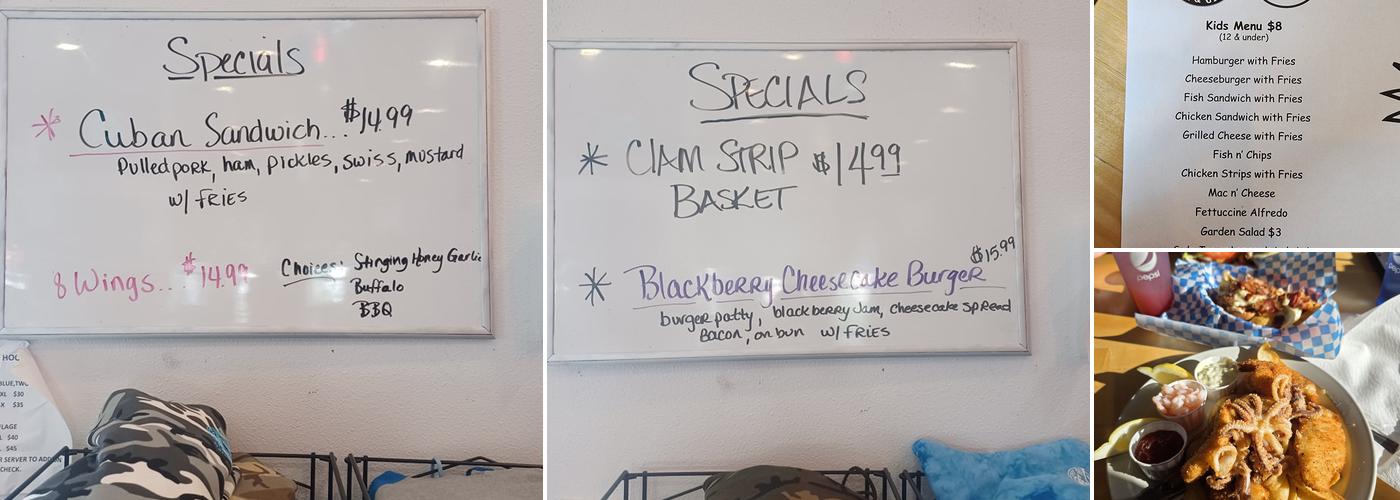 Specials
* Cuban Sandwich... $14.99
Pulled pork, ham, pickles, swiss, mustard
w/ FRIES
8 Wings... $14.99
Choices: Stinging Honey Garlic
Buffalo
BBQ
HOO
BLUE, TWO
XL $30
X $35
FLAGE
L $40
$45
R SERVER TO ADD ON
CHECK.
SPECIALS
* CLAM STRIP $14.99
BASKET
$15.99
* Blackberry Cheesecake Burger
burger patty, blackberry Jam, cheesecake spread
Bacon, on bun w/ FRIES
Kids Menu $8
(12 & under)
Hamburger with Fries
Cheeseburger with Fries
Fish Sandwich with Fries
Chicken Sandwich with Fries
Grilled Cheese with Fries
Fish n' Chips
Chicken Strips with Fries
Mac n' Cheese
Fettuccine Alfredo
Garden Salad $3
pepsi